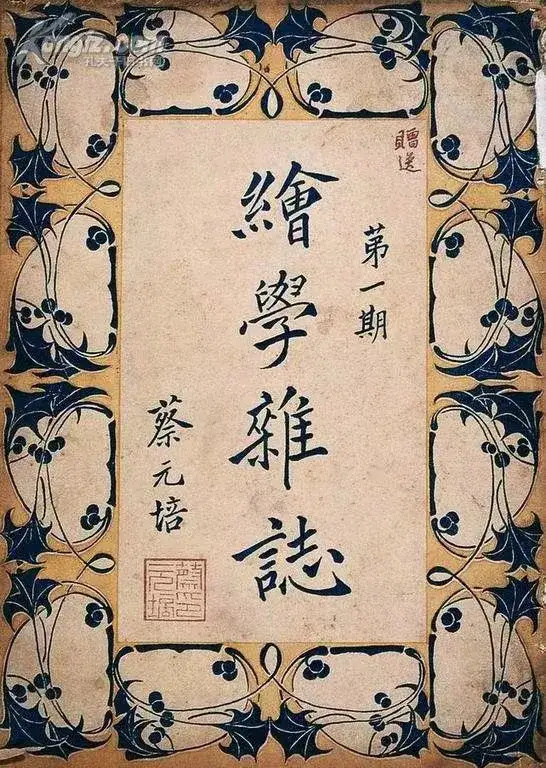 贈送
第一期
繪學雜誌
蔡元培
蔡元培印
Kongfz.com
孔夫子旧书网